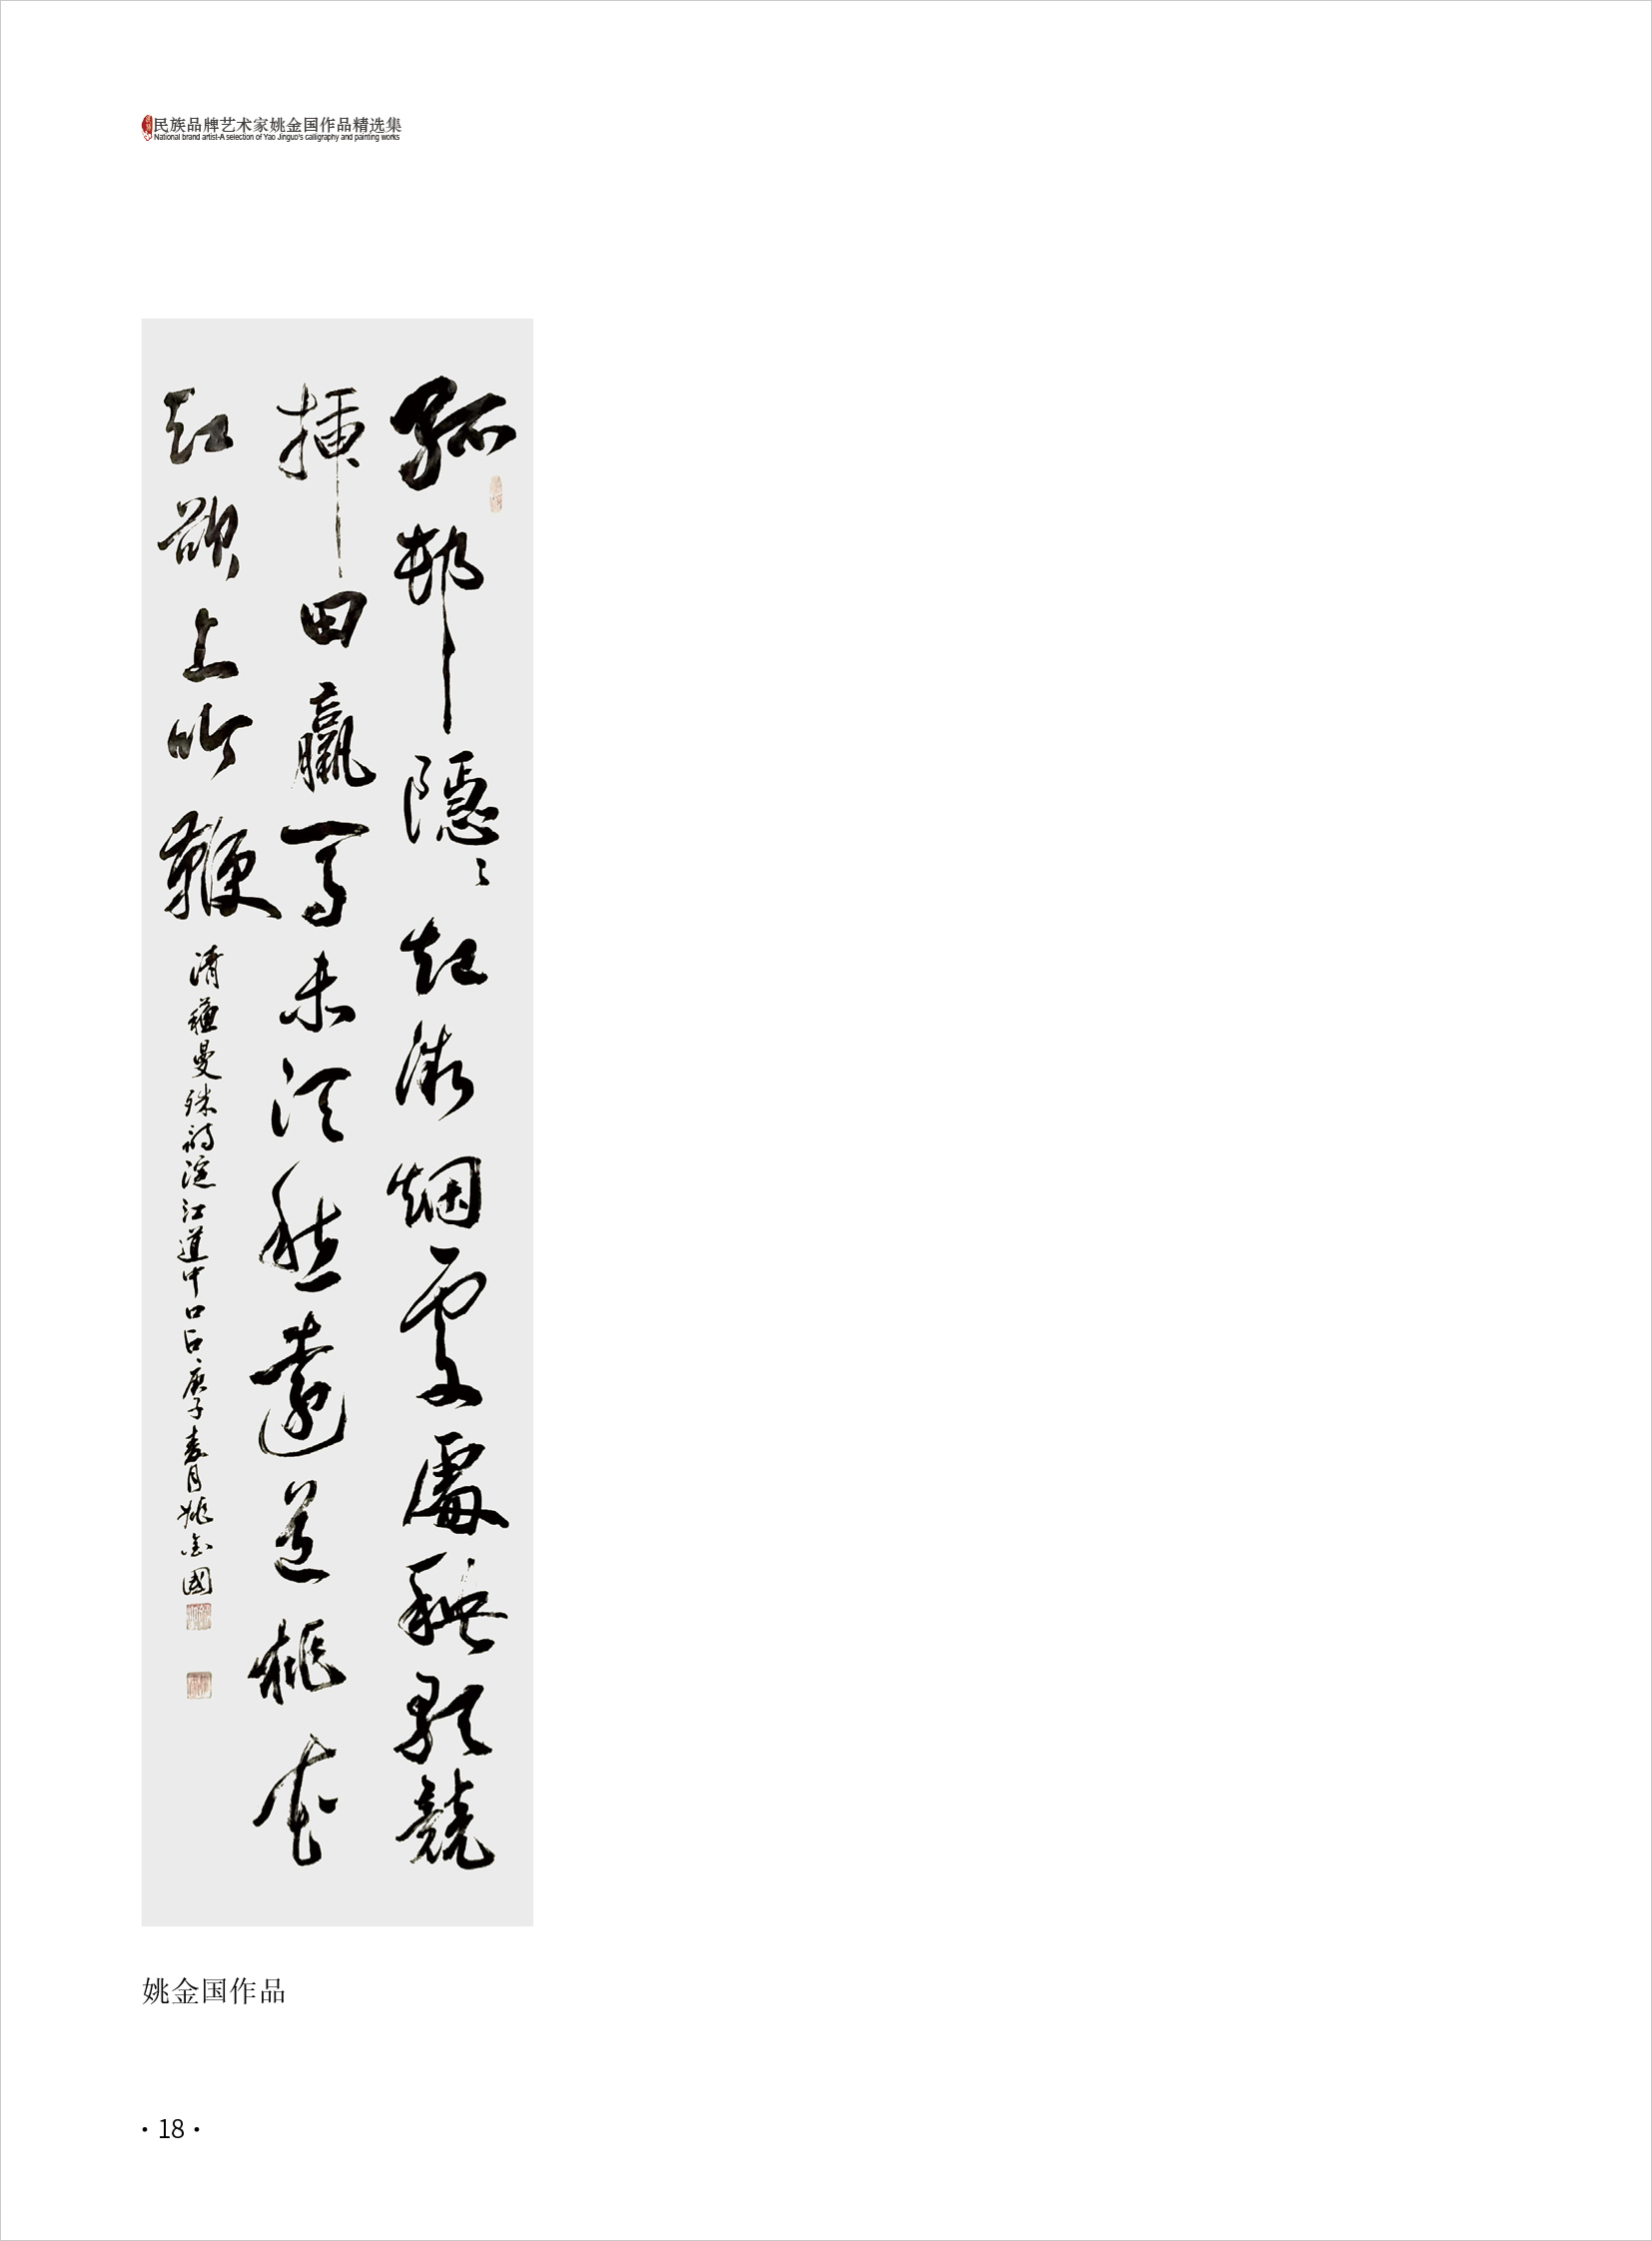 民族品牌艺术家姚金国作品精选集
National brand artist-A selection of Yao Jinguo's calligraphy and painting works
孤邨隱〻起微烟處處秧歌競
插田羸馬未須愁遠道桃花
紅欲上吟鞭
清蘇曼殊詩淀江道中口占庚子春月姚金國
姚金国作品
·18·